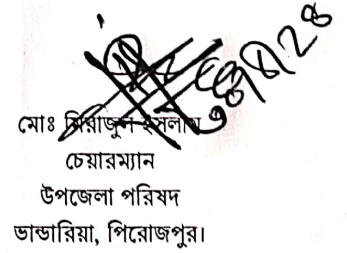 মোঃ মিরাজুল ইসলাম
চেয়ারম্যান
উপজেলা পরিষদ
ভান্ডারিয়া, পিরোজপুর।